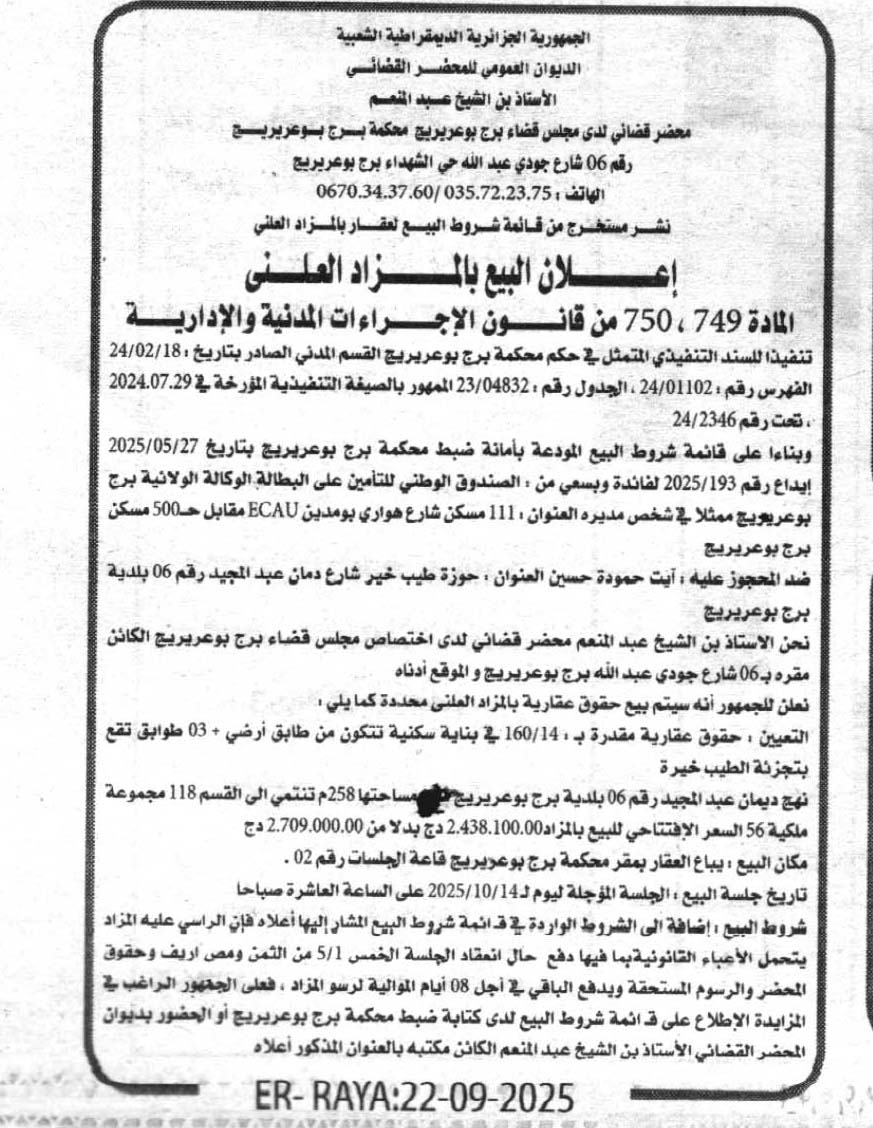 الجمهورية الجزائرية الديمقراطية الشعبية
الديوان العمومي للمحضر القضائي
الأستاذ بن الشيخ عبد المنعم
محضر قضائي لدى مجلس قضاء برج بوعريريج محكمة برج بوعريريج
رقم 06 شارع جودي عبد الله حي الشهداء برج بوعريريج
الهاتف : 035.72.23.75 /0670.34.37.60
نشر مستخرج من قائمة شروط البيع لعقار بالمزاد العلني
إعلان البيع بالمزاد العلنى
المادة 749 ، 750 من قانون الإجراءات المدنية والإدارية
تنفيذا للسند التنفيذي المتمثل في حكم محكمة برج بوعريريج القسم المدني الصادر بتاريخ : 24/02/18
الفهرس رقم : 24/01102 ، الجدول رقم : 23/04832 الممهور بالصيغة التنفيذية المؤرخة في 2024.07.29
، تحت رقم 24/2346
وبناءا على قائمة شروط البيع المودعة بأمانة ضبط محكمة برج بوعريريج بتاريخ 2025/05/27
إيداع رقم 2025/193 لفائدة وبسعي من : الصندوق الوطني للتأمين على البطالة الوكالة الولائية برج
بوعريريج ممثلا في شخص مديره العنوان : 111 مسكن شارع هواري بومدين ECAU مقابل حـ500 مسكن
برج بوعريريج
ضد المحجوز عليه : آيت حمودة حسين العنوان : حوزة طيب خير شارع دمان عبد المجيد رقم 06 بلدية
برج بوعريريج
نحن الاستاذ بن الشيخ عبد المنعم محضر قضائي لدى اختصاص مجلس قضاء برج بوعريريج الكائن
مقره بـ06 شارع جودي عبد الله برج بوعريريج و الموقع أدناه
نعلن للجمهور أنه سيتم بيع حقوق عقارية بالمزاد العلنى محددة كما يلي :
التعيين : حقوق عقارية مقدرة بـ : 160/14 في بناية سكنية تتكون من طابق أرضي + 03 طوابق تقع
بتجزئة الطيب خيرة
نهج ديمان عبد المجيد رقم 06 بلدية برج بوعريريج مساحتها 258م تنتمي الى القسم 118 مجموعة
ملكية 56 السعر الإفتتاحي للبيع بالمزاد2.438.100.00 دج بدلا من 2.709.000.00 دج
مكان البيع : يباع العقار بمقر محكمة برج بوعريريج قاعة الجلسات رقم 02 .
تاريخ جلسة البيع : الجلسة المؤجلة ليوم لـ2025/10/14 على الساعة العاشرة صباحا
شروط البيع : إضافة الى الشروط الواردة في قائمة شروط البيع المشار إليها أعلاه فإن الراسي عليه المزاد
يتحمل الأعباء القانونيةبما فيها دفع حال انعقاد الجلسة الخمس 5/1 من الثمن ومص اريف وحقوق
المحضر والرسوم المستحقة ويدفع الباقي في أجل 08 أيام الموالية لرسو المزاد ، فعلى الجمهور الراغب في
المزايدة الإطلاع على قائمة شروط البيع لدى كتابة ضبط محكمة برج بوعريريج أو الحضور بديوان
المحضر القضائي الأستاذ بن الشيخ عبد المنعم الكائن مكتبه بالعنوان المذكور أعلاه
ER- RAYA:22-09-2025